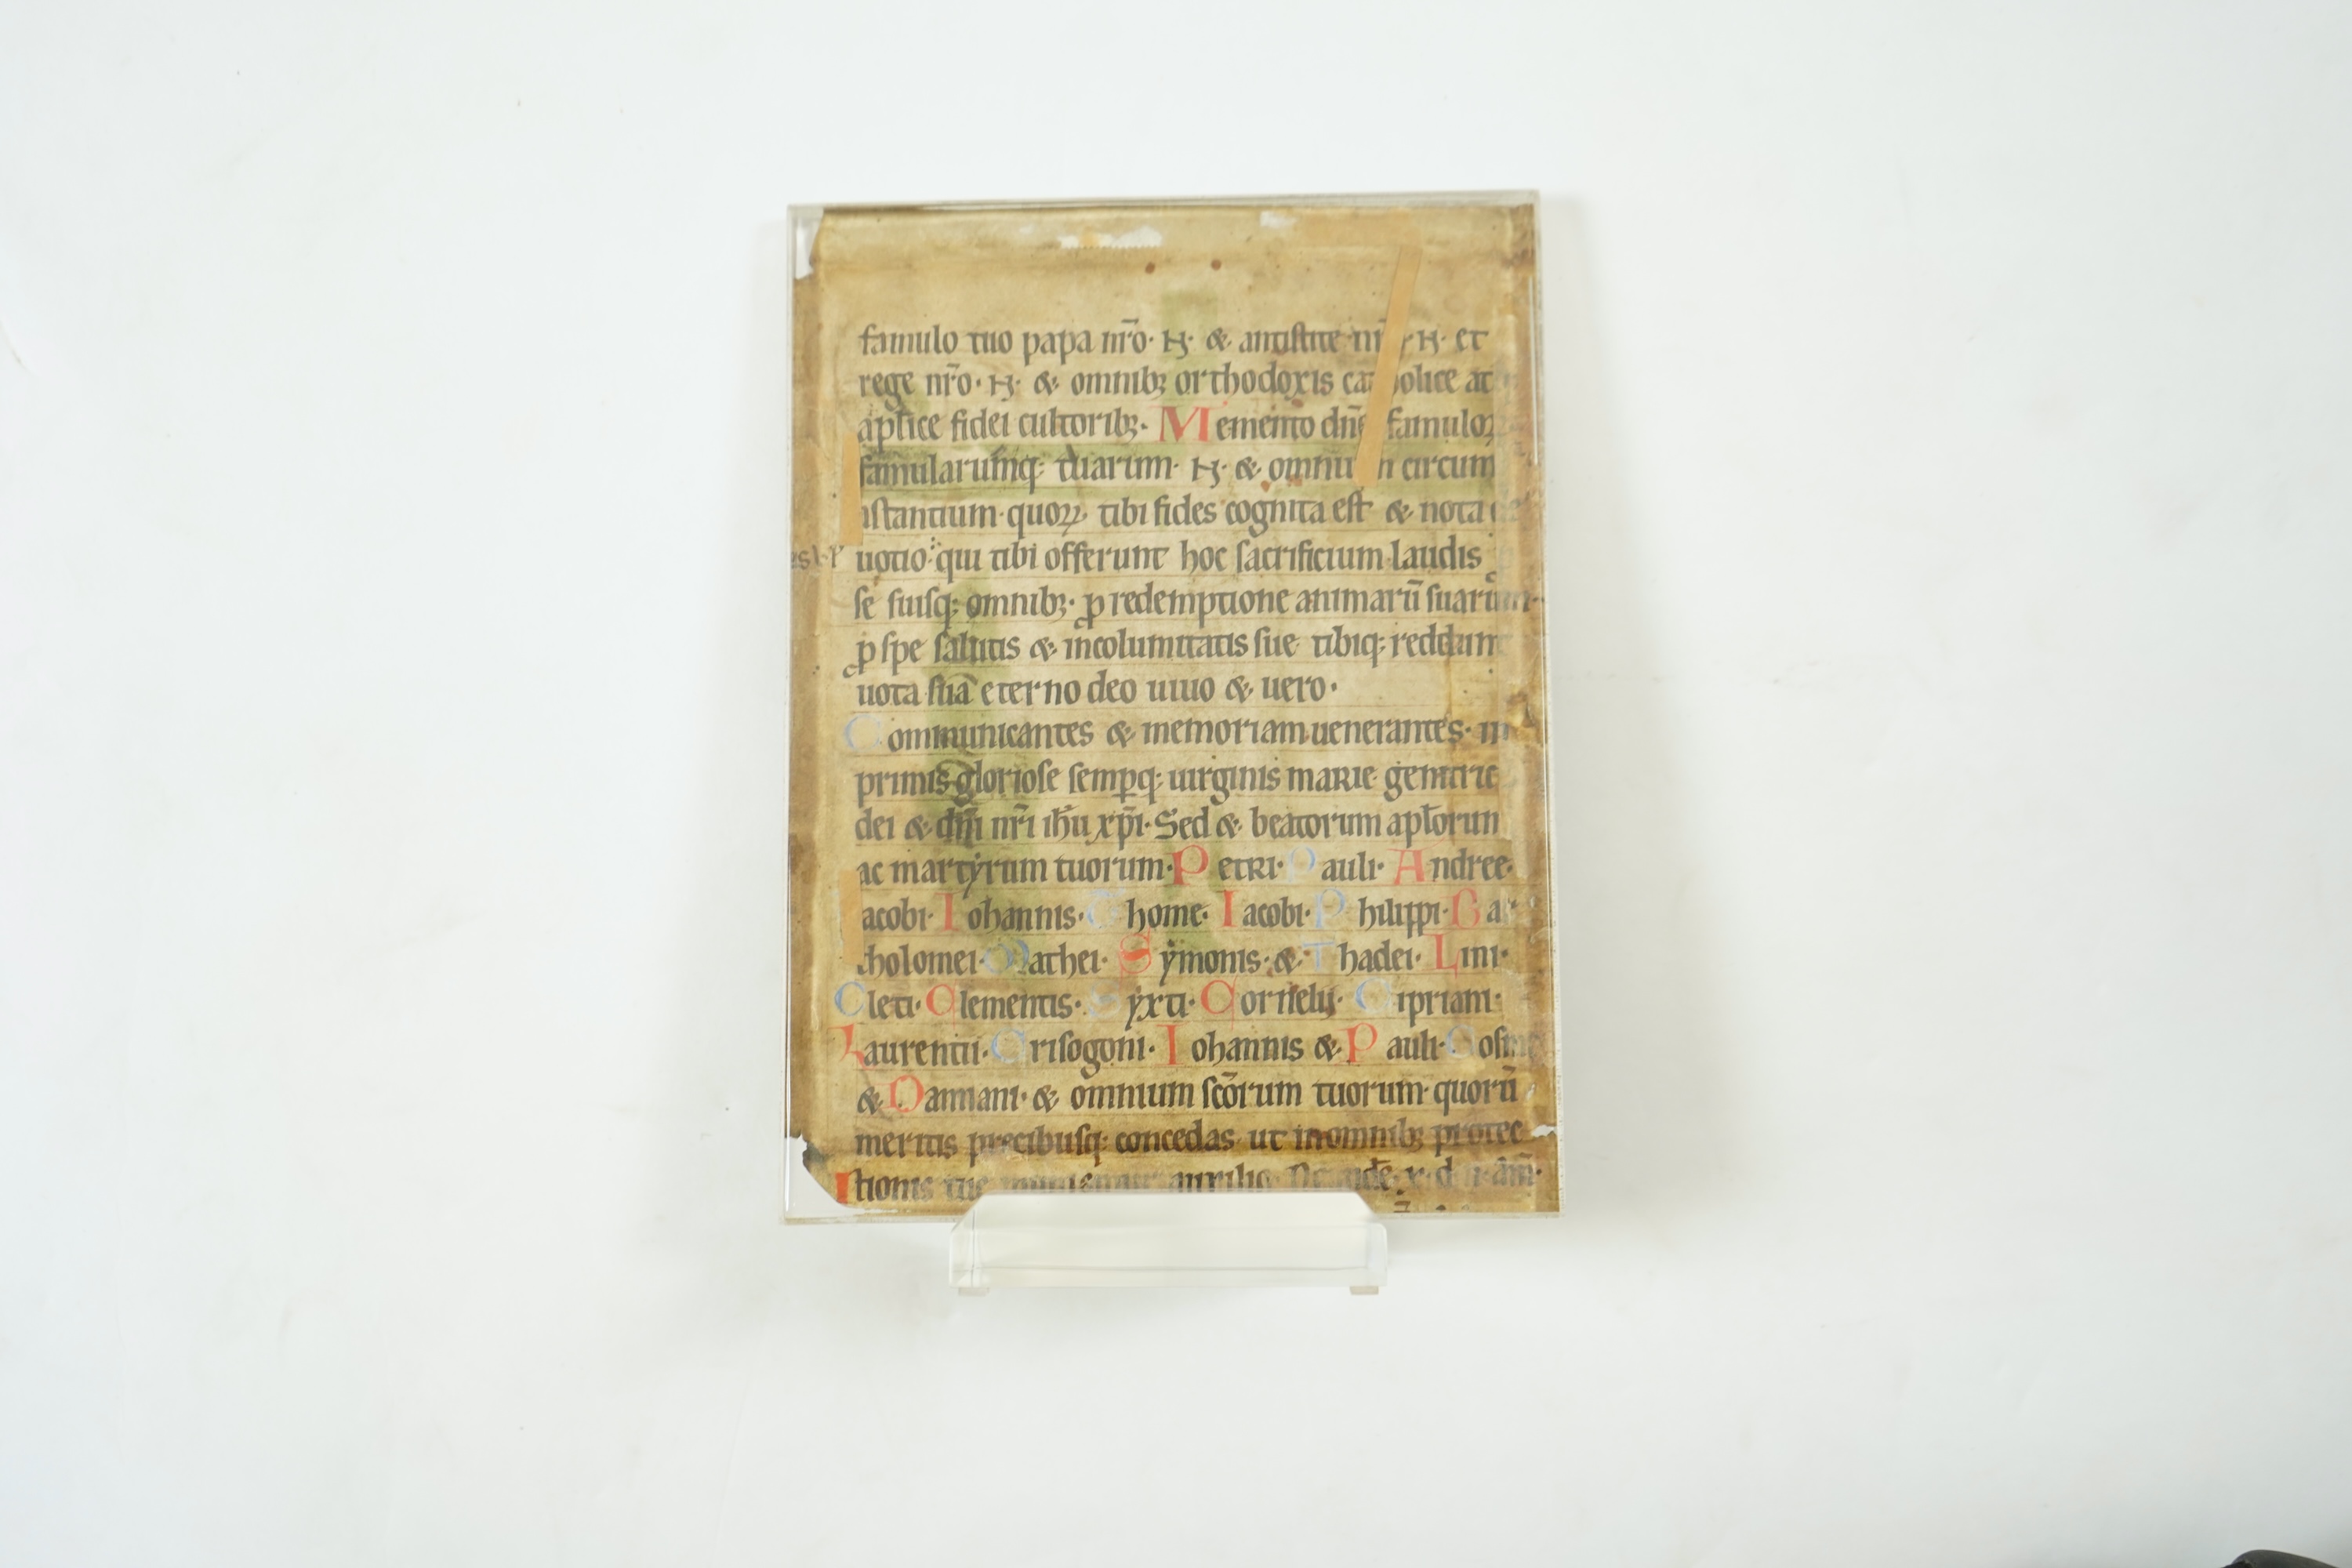 famulo tuo papa nr̄o· N· & antistite nr̄ N· et
rege nr̄o· N· & omnibꝫ orthodoxis catholice at
aplice fidei cultoribꝫ· Memento dn̄e famuloꝝ
famularūmq; tuarum· N· & omnium circum
astantium· quoꝝ tibi fides cognita est & nota de
uotio· qui tibi offerunt hoc sacrificium laudis
se suisq; omnibꝫ· ꝓ redemptione animarū suarum·
ꝓ spe salutis & incolumitatis sue tibiq; reddunt
uota sua eterno deo uiuo & uero·
Communicantes & memoriam uenerantes· in
primis gloriose semꝑq; uirginis marie genitric
dei & dn̄i nr̄i ih̄u xp̄i· Sed & beatorum apl̄orum
ac martyrum tuorum· Petri· Pauli· Andree·
acobi· Iohannis· Thome· Iacobi· Philippi· Bar
tholomei· Mathei· Symonis· & Thadei· Lini·
Cleti· Clementis· Syxti· Cornelij· Cipriani·
Laurentii· Grisogoni· Iohannis & Pauli· Cosme
& Damiani· & omnium scōrum tuorum· quorū
meritis precibusq; concedas ut in omnibꝫ protec
tionis tue muniamur auxilio